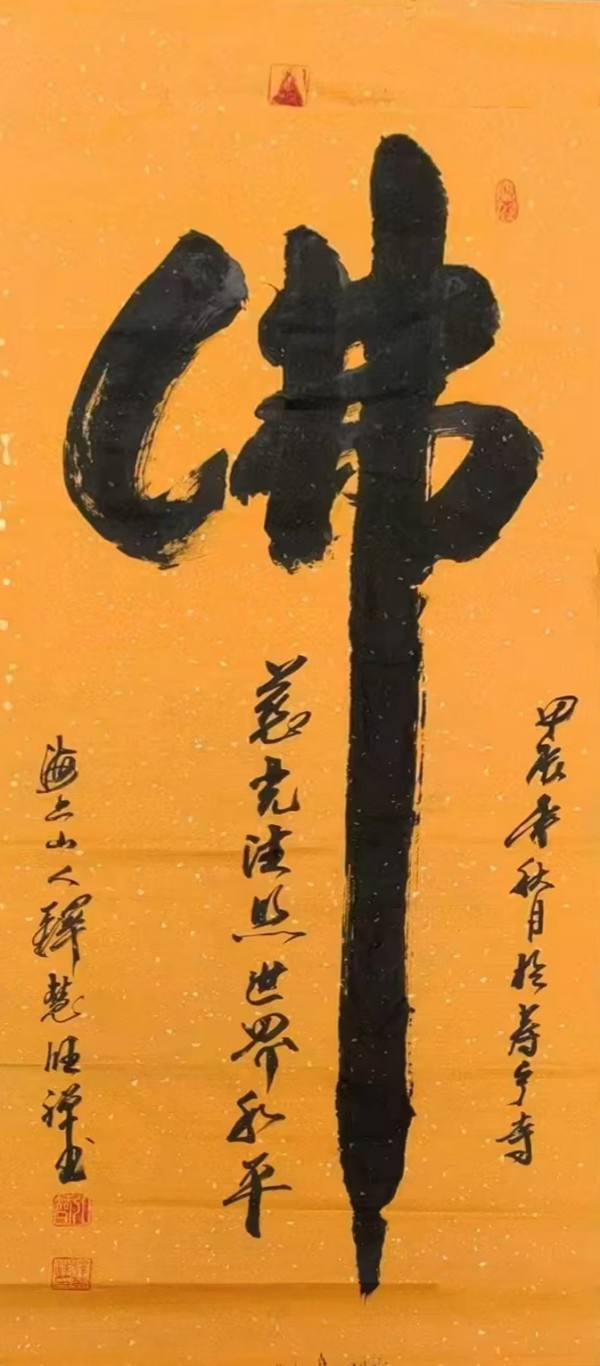 佛
甲辰年秋月於寿宁寺
慈光法照世界和平
海上山人釋慧旺禅书